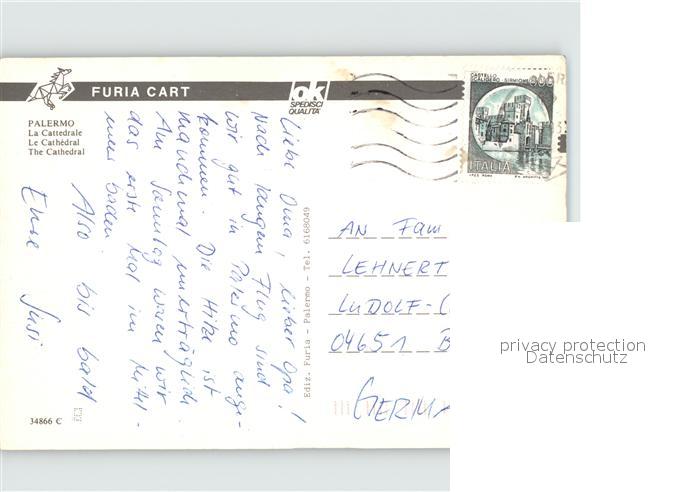 FURIA CART
ok
SPEDISCI
QUALITÀ
PALERMO
La Cattedrale
Le Cathédral
The Cathedral
Liebe Oma, lieber Opa!
Nach langem Flug sind
wir gut in Palermo ange-
kommen. Die Hitze ist
manchmal unerträglich.
Am Samstag waren wir
das erste Mal im Mittel-
meer baden.
Also bis bald
Eure Susi
Ediz. Furia - Palermo - Tel. 6168049
CASTELLO
SCALIGERO - SIRMIONE
ITALIA
AN Fam
LEHNERT
LUDOLF-
04651 B
GERMA
34866 C
privacy protection
Datenschutz